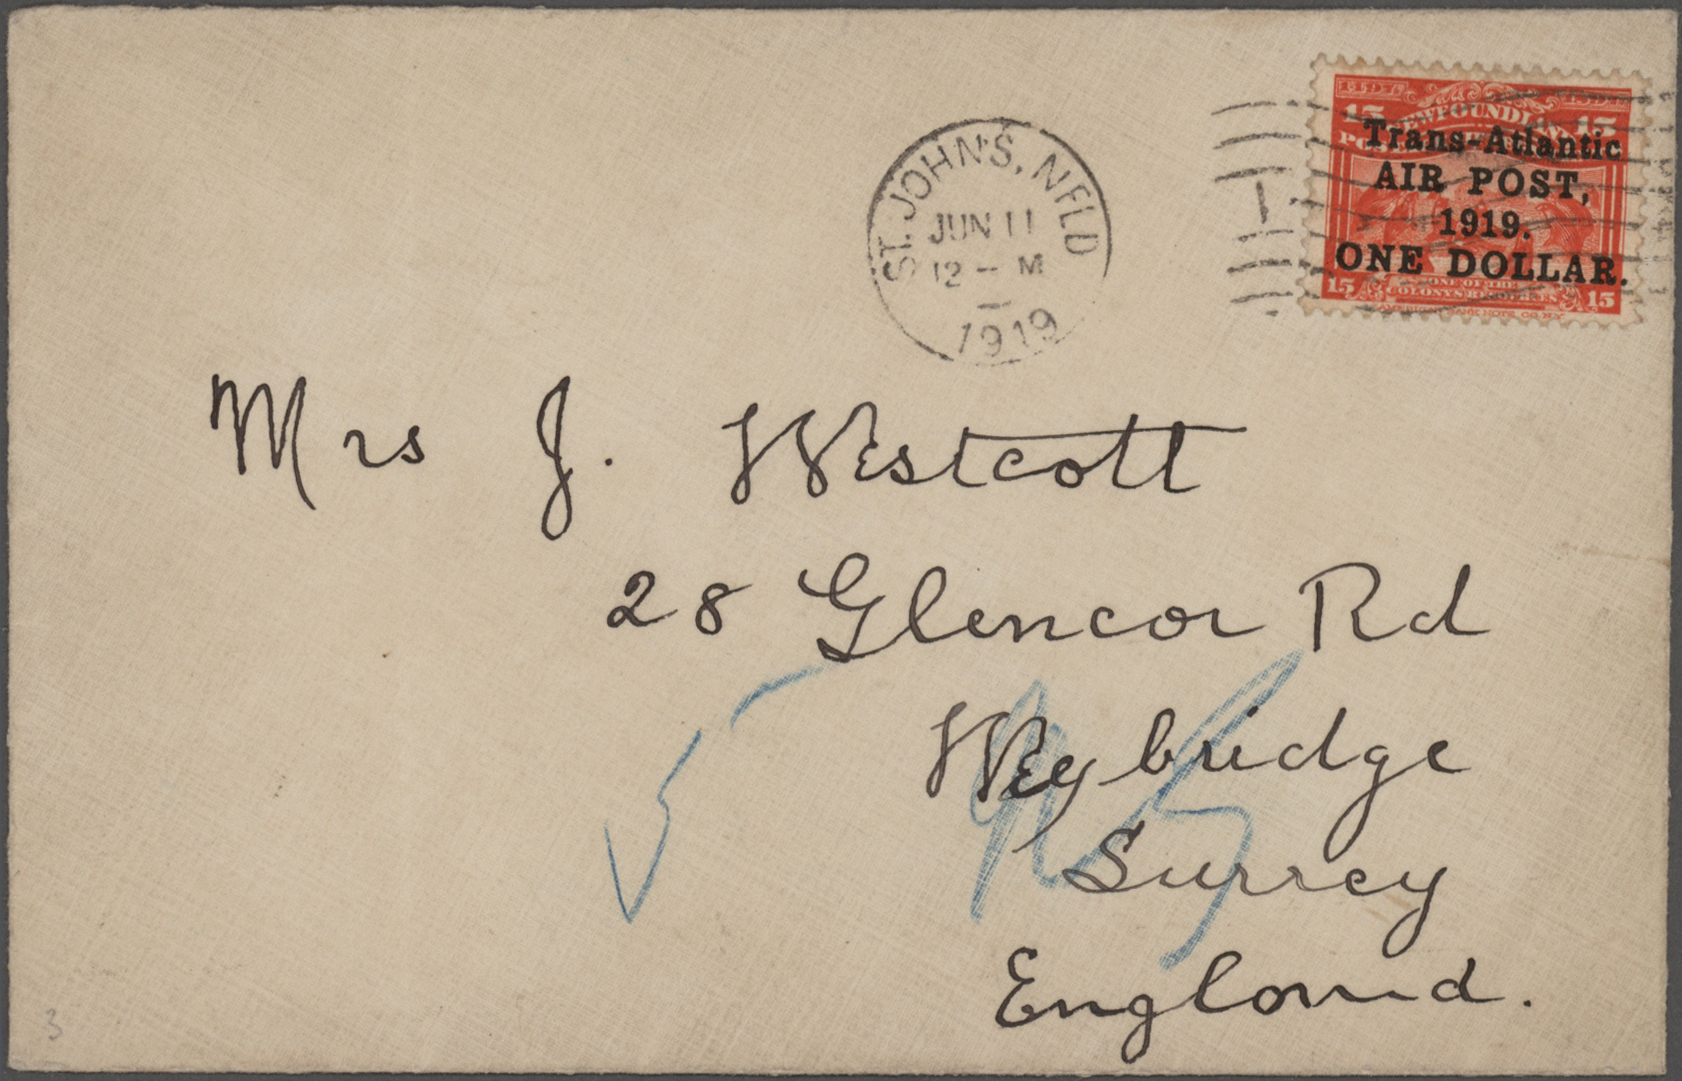 ST. JOHN'S, NFLD
JUN 11
12 - M
1919
15 NEWFOUNDLAND 15
Trans-Atlantic
AIR POST,
1919.
ONE DOLLAR.
ONE OF THE
15 COLONY'S RESOURCES 15
Mrs J. Westcott
28 Glencoe Rd
Weybridge
Surrey
England.
3